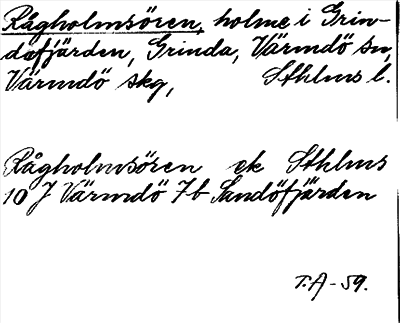 Rågholmsören, holme i Grin-
dafjärden, Grinda, Värmdö sn,
Värmdö skg, Sthlms l.
Rågholmsören ek Sthlms
10 J Värmdö 7b Sandöfjärden
T.A-59.